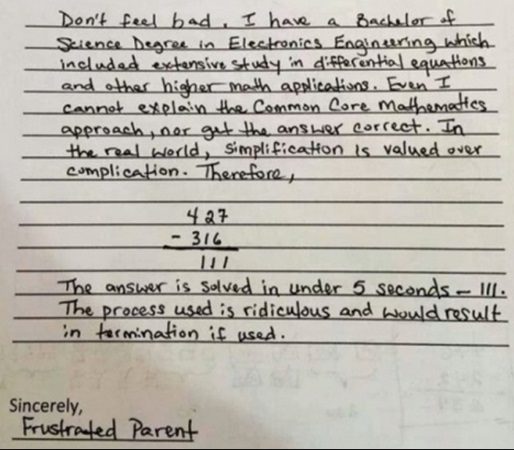 Don't feel bad. I have a Bachelor of
Science Degree in Electronics Engineering which
included extensive study in differential equations
and other higher math applications. Even I
cannot explain the Common Core mathematics
approach, nor get the answer correct. In
the real world, simplification is valued over
complication. Therefore,
427
- 316
111
The answer is solved in under 5 seconds - 111.
The process used is ridiculous and would result
in termination if used.
Sincerely,
Frustrated Parent